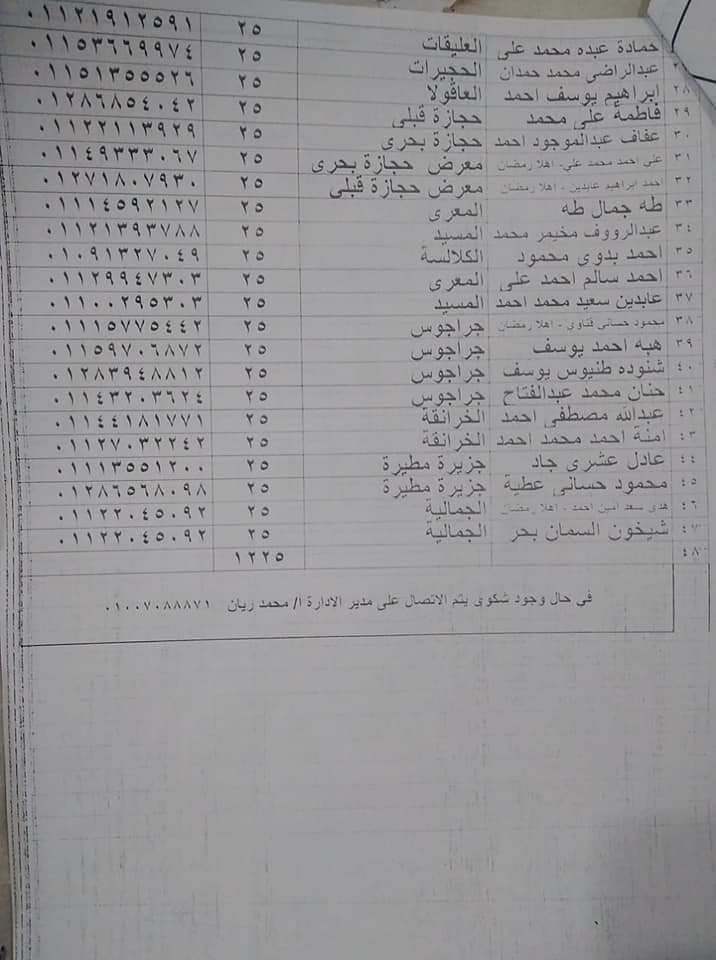 حمادة عبده محمد على العليقات ٢٥ ٠١١٢١٩١٢٥٩١
عبدالراضى محمد حمدان الحجيرات ٢٥ ٠١١٥٣٦٦٩٩٧٤
٢٨ ابراهيم يوسف احمد العاقولا ٢٥ ٠١١٥١٣٥٥٥٢٦
٢٩ فاطمة على محمد حجازة قبلى ٢٥ ٠١٢٨٦٨٥٤٠٤٢
٣٠ عفاف عبدالموجود احمد حجازة بحرى ٢٥ ٠١١٢٢١١٣٩٢٩
٣١ على احمد محمد على - اهلا رمضان معرض حجازة بحرى ٢٥ ٠١١٤٩٣٣٣٠٦٧
٣٢ احمد ابراهيم عابدين - اهلا رمضان معرض حجازة قبلى ٢٥ ٠١٢٧١٨٠٧٩٣٠
٣٣ طه جمال طه المعرى ٢٥ ٠١١١٤٥٩٢١٢٧
٣٤ عبدالرووف مخيمر محمد المسيد ٢٥ ٠١١٢١٣٩٣٧٨٨
٣٥ احمد بدوى محمود الكلالسة ٢٥ ٠١٠٩١٣٢٧٠٤٩
٣٦ احمد سالم احمد على المعرى ٢٥ ٠١١٢٩٩٤٧٣٠٣
٣٧ عابدين سعيد محمد احمد المسيد ٢٥ ٠١١٠٠٢٩٥٣٠٣
٣٨ محمود حسانى قناوى - اهلا رمضان جراجوس ٢٥ ٠١١١٥٧٧٥٤٤٢
٣٩ هبه احمد يوسف جراجوس ٢٥ ٠١١٥٩٧٠٦٨٧٢
٤٠ شنوده طنيوس يوسف جراجوس ٢٥ ٠١٢٨٣٩٤٨٨١٢
٤١ حنان محمد عبدالفتاح جراجوس ٢٥ ٠١١٤٣٢٠٣٦٢٤
٤٢ عبدالله مصطفى احمد الخرانقة ٢٥ ٠١١٤٤١٨١٧٧١
٤٣ امنة احمد محمد احمد الخرانقة ٢٥ ٠١١٢٧٠٣٢٢٤٢
٤٤ عادل عشرى جاد جزيرة مطيرة ٢٥ ٠١١١٣٥٥١٢٠٠
٤٥ محمود حسانى عطية جزيرة مطيرة ٢٥ ٠١٢٨٦٥٦٨٠٩٨
٤٦ هدى سعد امين احمد - اهلا رمضان الجمالية ٢٥ ٠١١٢٢٠٤٥٠٩٢
٤٧ شيخون السمان بحر الجمالية ٢٥ ٠١١٢٢٠٤٥٠٩٢
٤٨ ١٢٢٥
فى حال وجود شكوى يتم الاتصال على مدير الادارة ا/ محمد ريان ٠١٠٠٧٠٨٨٨٧١